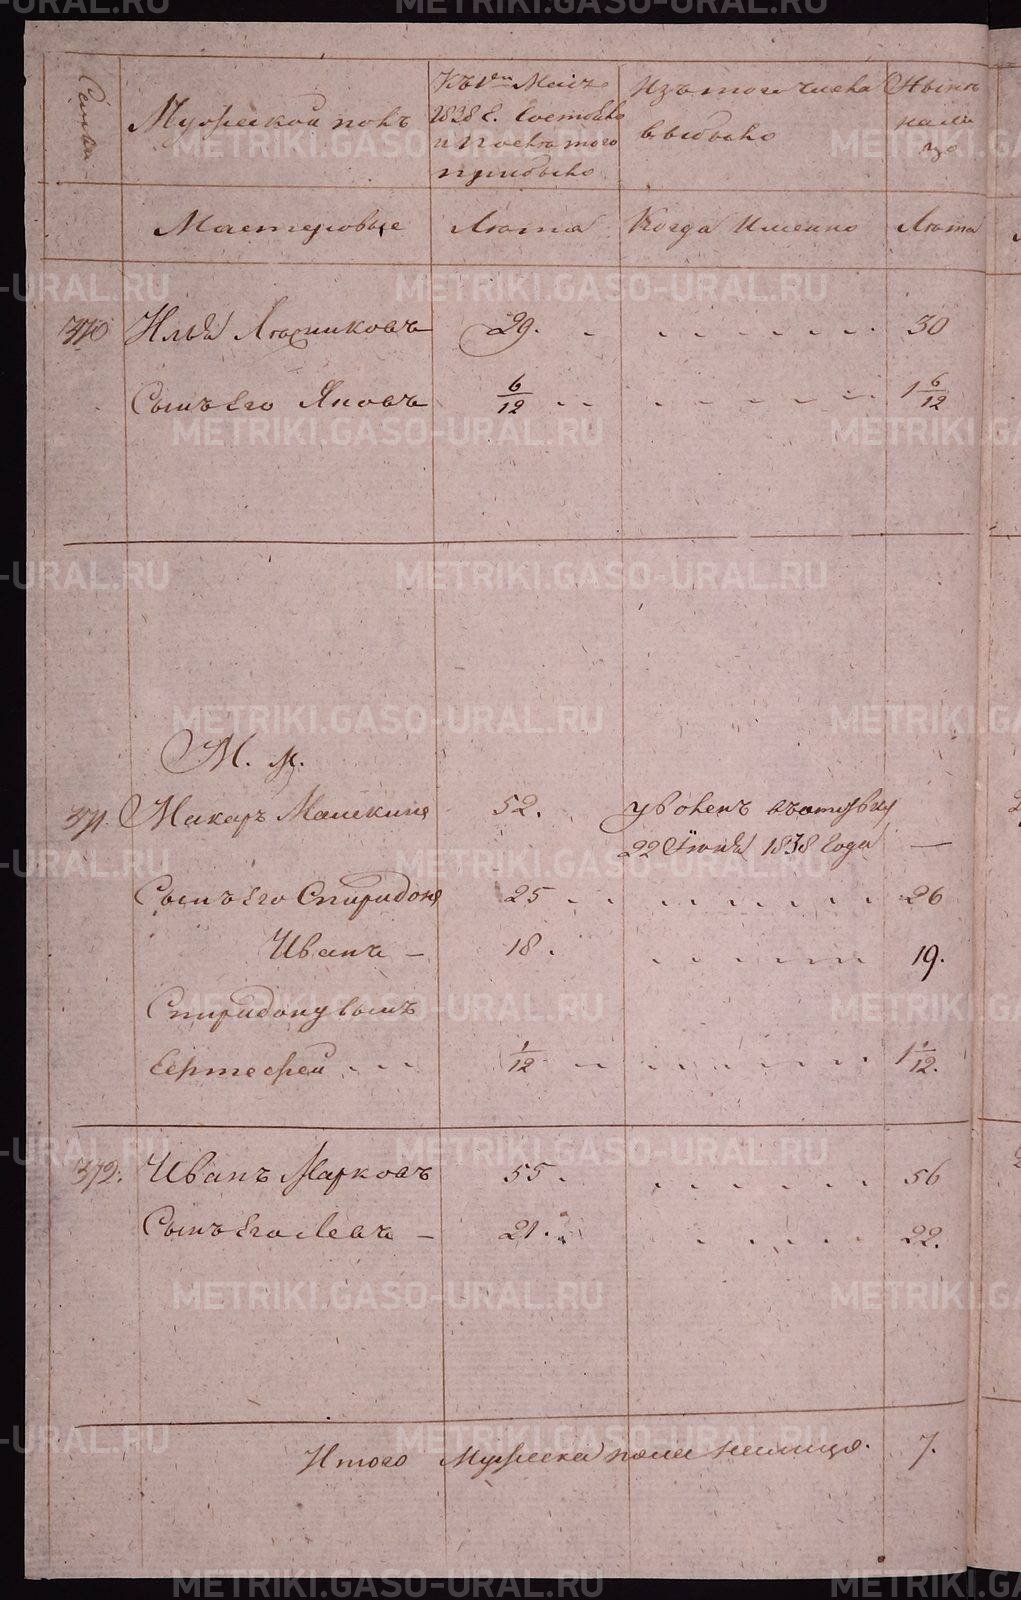 Семьи
Мужеской полъ
Къ 1му Маія
1838 г. состояло
и после того
прибыло
Изъ того числа
выбыло
Нынѣ
на ли
цо
Мастеровые
Лѣта
Когда Имянно
Лѣта
370
Илья
29.
30
Сынъ его Яковъ
6/12
1 6/12
М. м.
371.
Макаръ Машкинъ
52.
уволенъ въ отставку
22 Іюня 1838 года
—
Сынъ его Спиридонъ
25
26
Иванъ —
18.
19.
Спиридону сынъ
1/12
1 1/12.
372.
Иванъ Марковъ
55.
56
Сынъ его Левъ —
21.
22.
Итого Мужеска пола налицо.
7.
METRIKI.GASO-URAL.RU